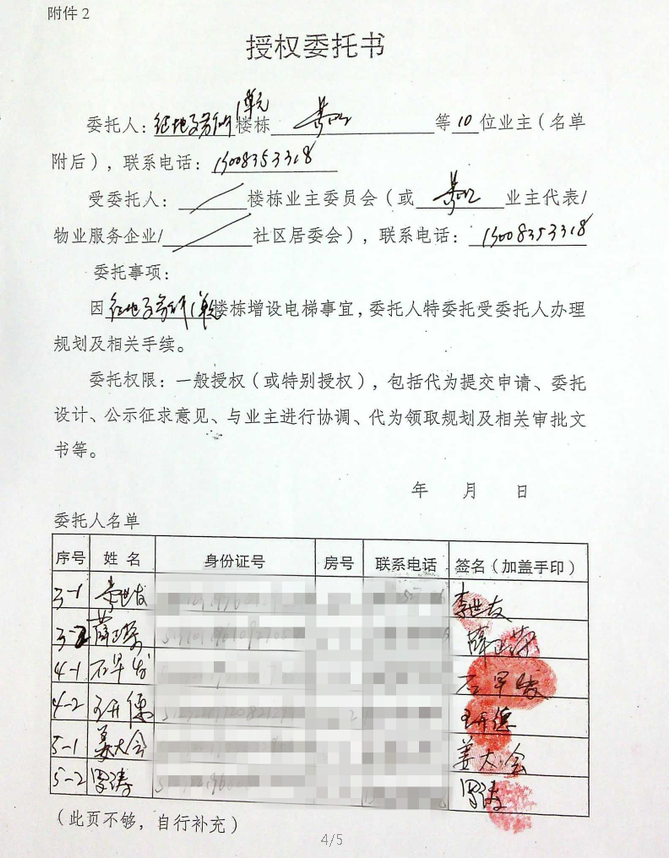 附件2
授权委托书
委托人：楼栋等10位业主（名单
附后），联系电话：13008353318
受委托人：楼栋业主委员会（或业主代表/
物业服务企业/社区居委会），联系电话：13008353318
委托事项：
因楼栋增设电梯事宜，委托人特委托受委托人办理
规划及相关手续。
委托权限：一般授权（或特别授权），包括代为提交申请、委托
设计、公示征求意见、与业主进行协调、代为领取规划及相关审批文
书等。
年 月 日
委托人名单
序号 姓名 身份证号 房号 联系电话 签名（加盖手印）
3-1 李世友 李世友
3-2
4-1 石早发 石早发
4-2 王开德 王开德
5-1 姜大会 姜大会
5-2 罗涛 罗涛
（此页不够，自行补充）
4/5